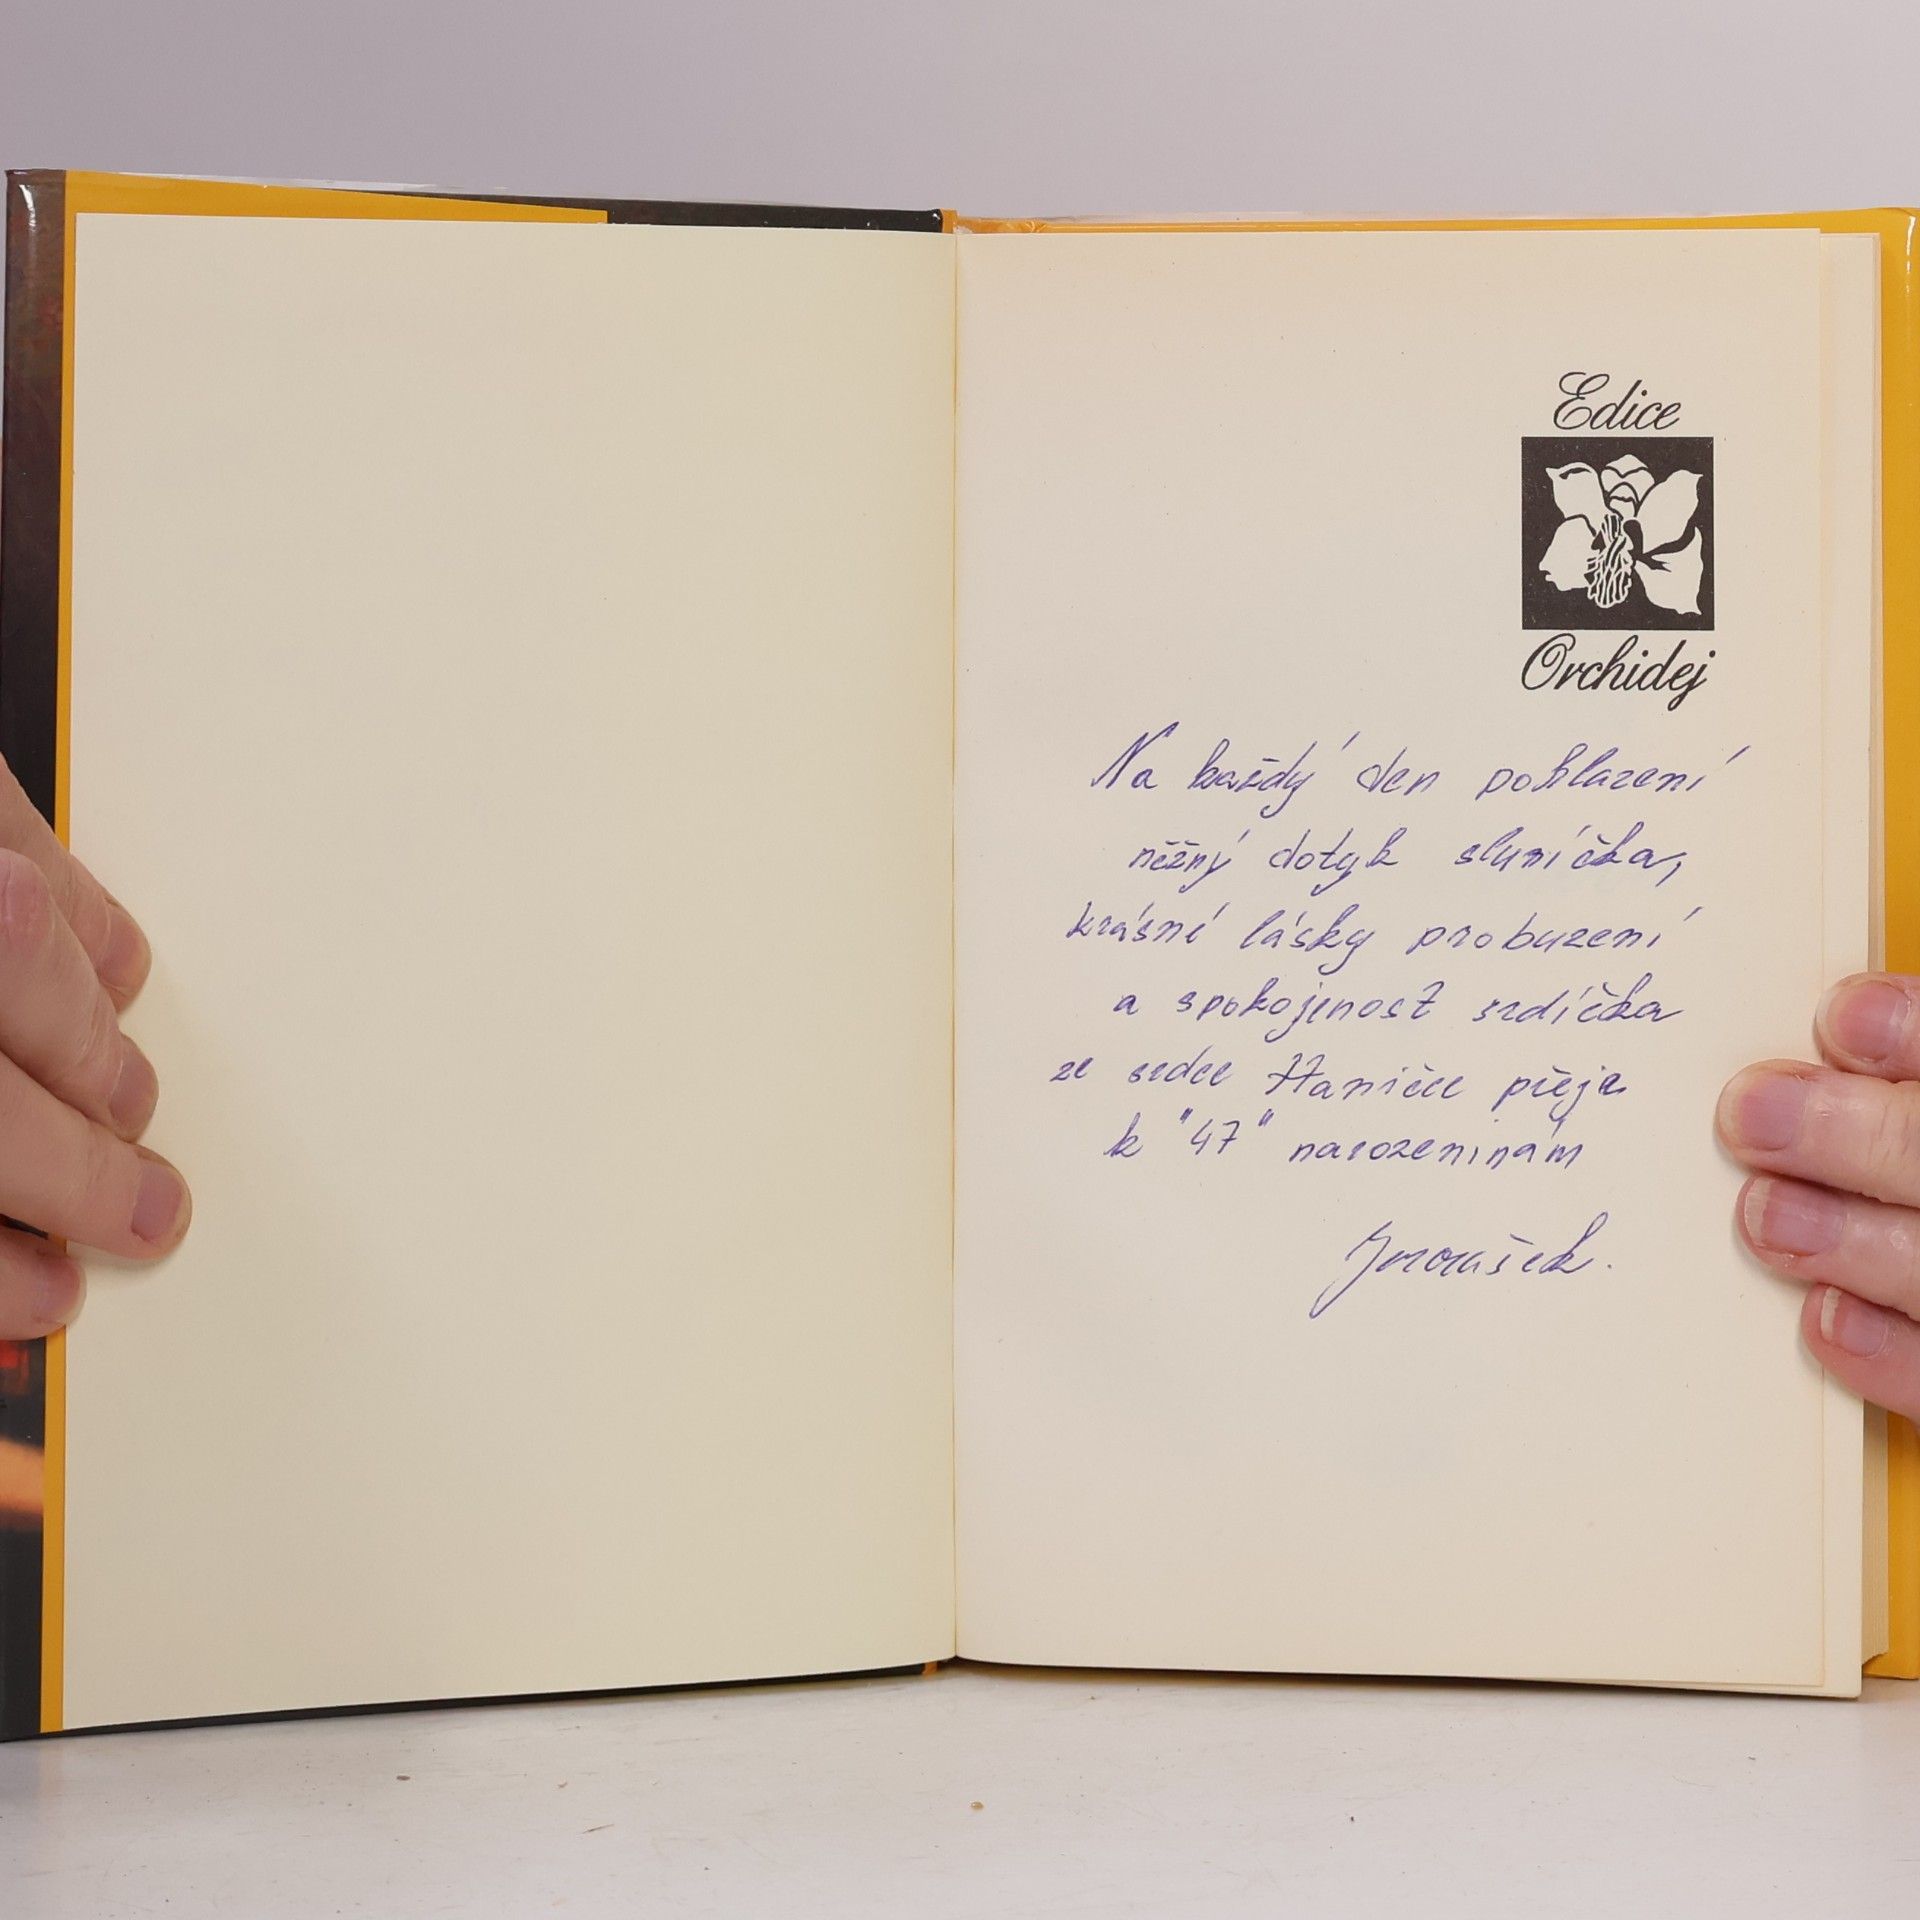 Edice
Orchidej
Na každý den pohlazení
něžný dotyk sluníčka,
krásné lásky probuzení
a spokojenost srdíčka
ze srdce Haničce přeje
k "47" narozeninám